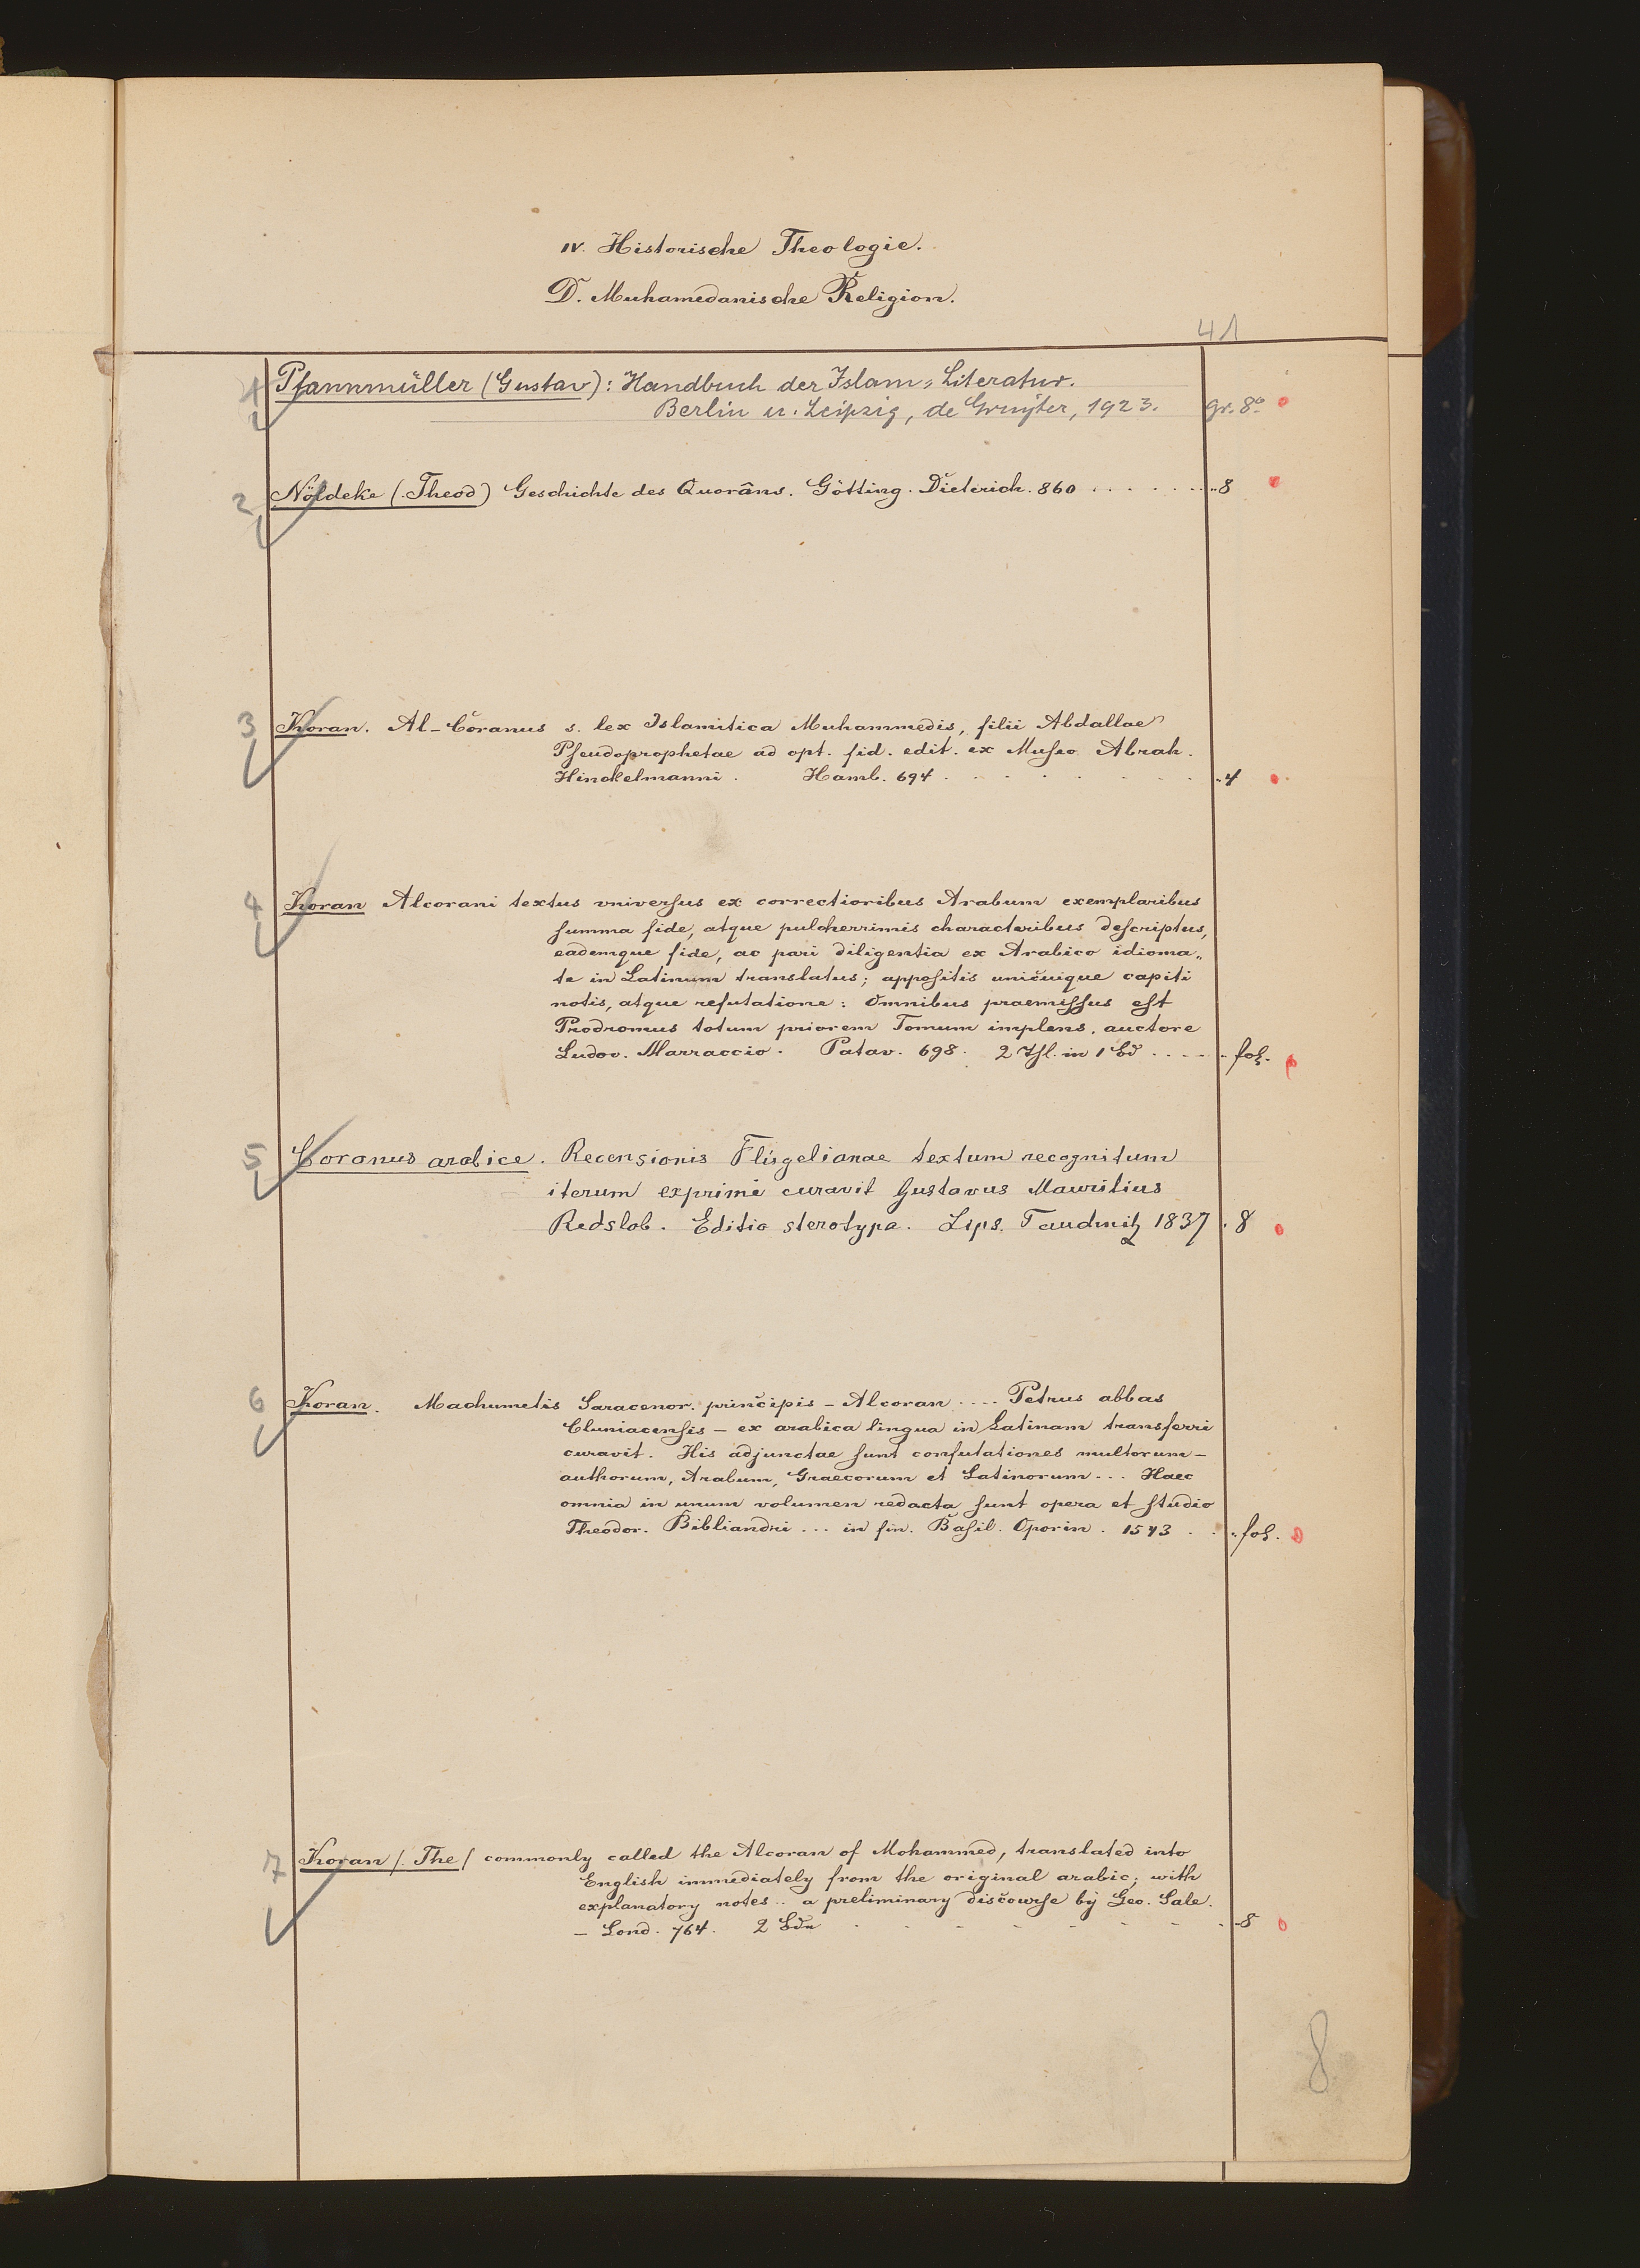 IV. Historische Theologie.
D. Muhamedanische Religion.
41
1 Pfannmüller (Gustav): Handbuch der Islam=Literatur.
Berlin u. Leipzig, de Gruyter, 1923. gr. 8°
2 Nöldeke (Theod) Geschichte des Quorâns. Götting. Dieterich. 860 . . . . . . . 8
3 Koran. Al-Coranus s. lex Islamitica Muhammedis, filii Abdallae
Pseudoprophetae ad opt. fid. edit. ex Museo Abrah.
Hinckelmanni. Hamb. 694 . . . . . . . . 4
4 Koran Alcorani textus vniversus ex correctioribus Arabum exemplaribus
summa fide, atque pulcherrimis characteribus descriptus,
eademque fide, ac pari diligentia ex Arabico idioma„
te in Latinum translatus; appositis unicuique capiti
notis, atque refutatione: Omnibus praemissus est
Prodromus totum priorem Tomum implens, auctore
Ludov. Marraccio. Patav. 698. 2 Thl. in 1 Bd . . . . . fol.
5 Coranus arabice. Recensionis Flügelianae textum recognitum
iterum exprimi curavit Gustavus Mauritius
Redslob. Editio sterotypa. Lips. Taudnitz 1837 . 8
6 Koran. Machumetis Saracenor. principis - Alcoran .... Petrus abbas
Cluniacensis - ex arabica lingua in Latinam transferri
curavit. His adjunctae sunt confutationes multorum -
authorum, Arabum, Graecorum et Latinorum ... Haec
omnia in unum volumen redacta sunt opera et studio
Theodor. Bibliandri ... in fin. Basil. Oporin. 1543 . . . fol.
7 Koran /. The / commonly called the Alcoran of Mohammed, translated into
English immediately from the original arabic; with
explanatory notes .. a preliminary discourse by Geo. Sale.
- Lond. 764. 2 Bde . . . . . . . . . 8
8